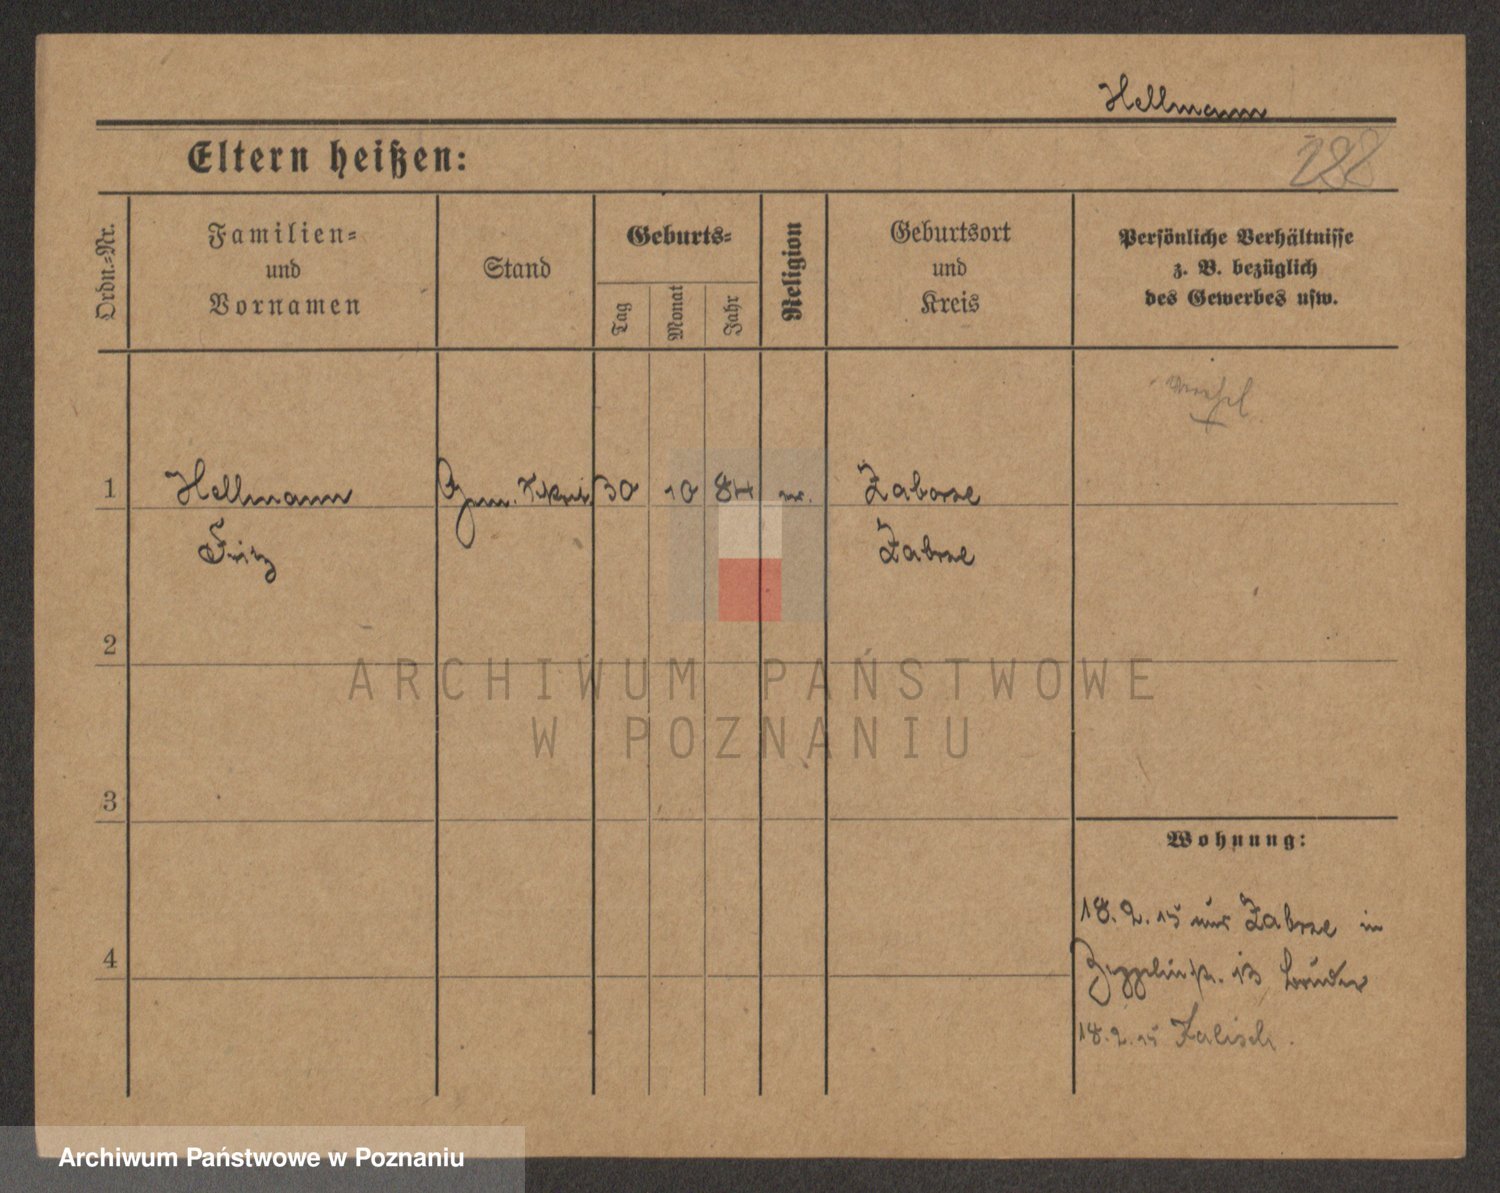 Hellmann
Eltern heißen:
288
Ordn.-Nr.
Familien-
und
Vornamen
Stand
Geburts-
Tag
Monat
Jahr
Religion
Geburtsort
und
Kreis
Persönliche Verhältnisse
z. B. bezüglich
des Gewerbes usw.
1 Hellmann 30 10 84 Zaborze
Fritz Zabrze
2
3
4
Wohnung:
18.2.15 aus Zabrze in
Zeppelinstr. 13 Bruder
18.2.15 Kalisch.
ARCHIWUM PAŃSTWOWE
W POZNANIU
Archiwum Państwowe w Poznaniu